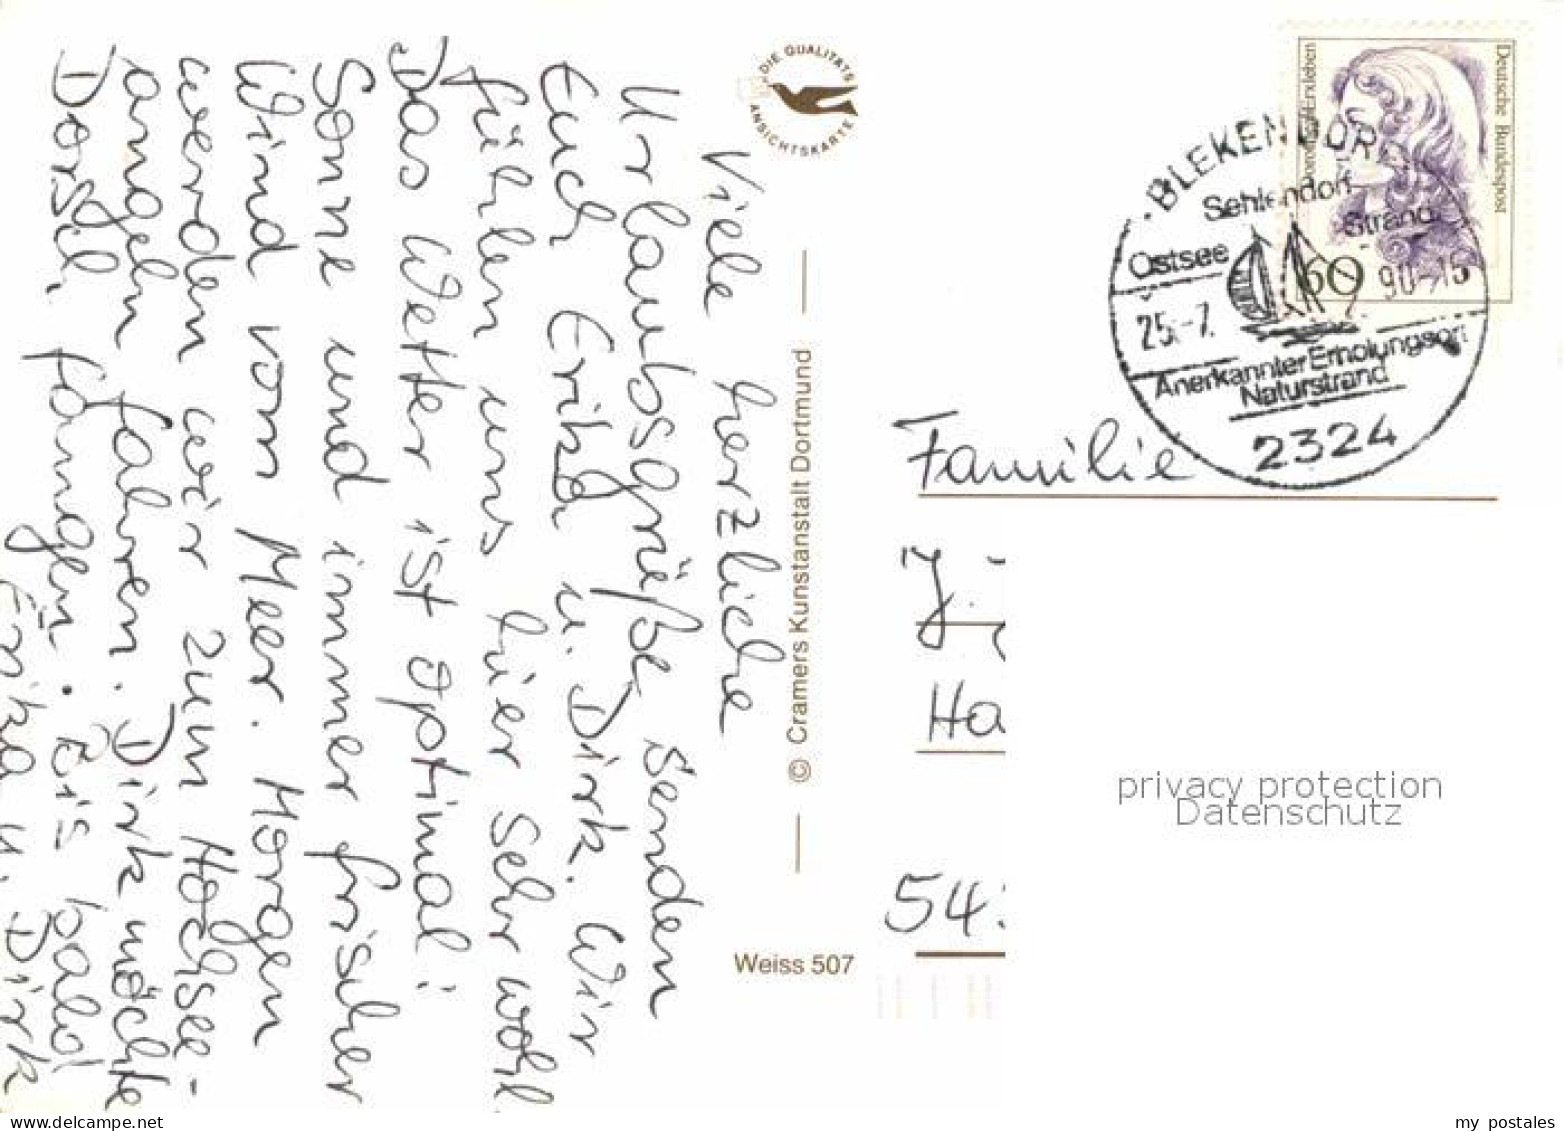 Viele herzliche
Urlaubsgrüße senden
Euch Erika u. Dirk. Wir
fühlen uns hier sehr wohl
Das Wetter ist optimal:
Sonne und immer frischer
Wind vom Meer. Morgen
werden wir zum Hochsee-
angeln fahren. Dirk möchte
Dorsch fangen. Bis bald
Erika u. Dirk
DIE QUALITÄTS
ANSICHTSKARTE
© Cramers Kunstanstalt Dortmund
Weiss 507
Deutsche Bundespost
60
BLEKENDORF
Sehlendorf
Strand
Ostsee
25.-7. 90-15
Anerkannter Erholungsort
Naturstrand
2324
Familie
Ha
54
privacy protection
Datenschutz
my postales